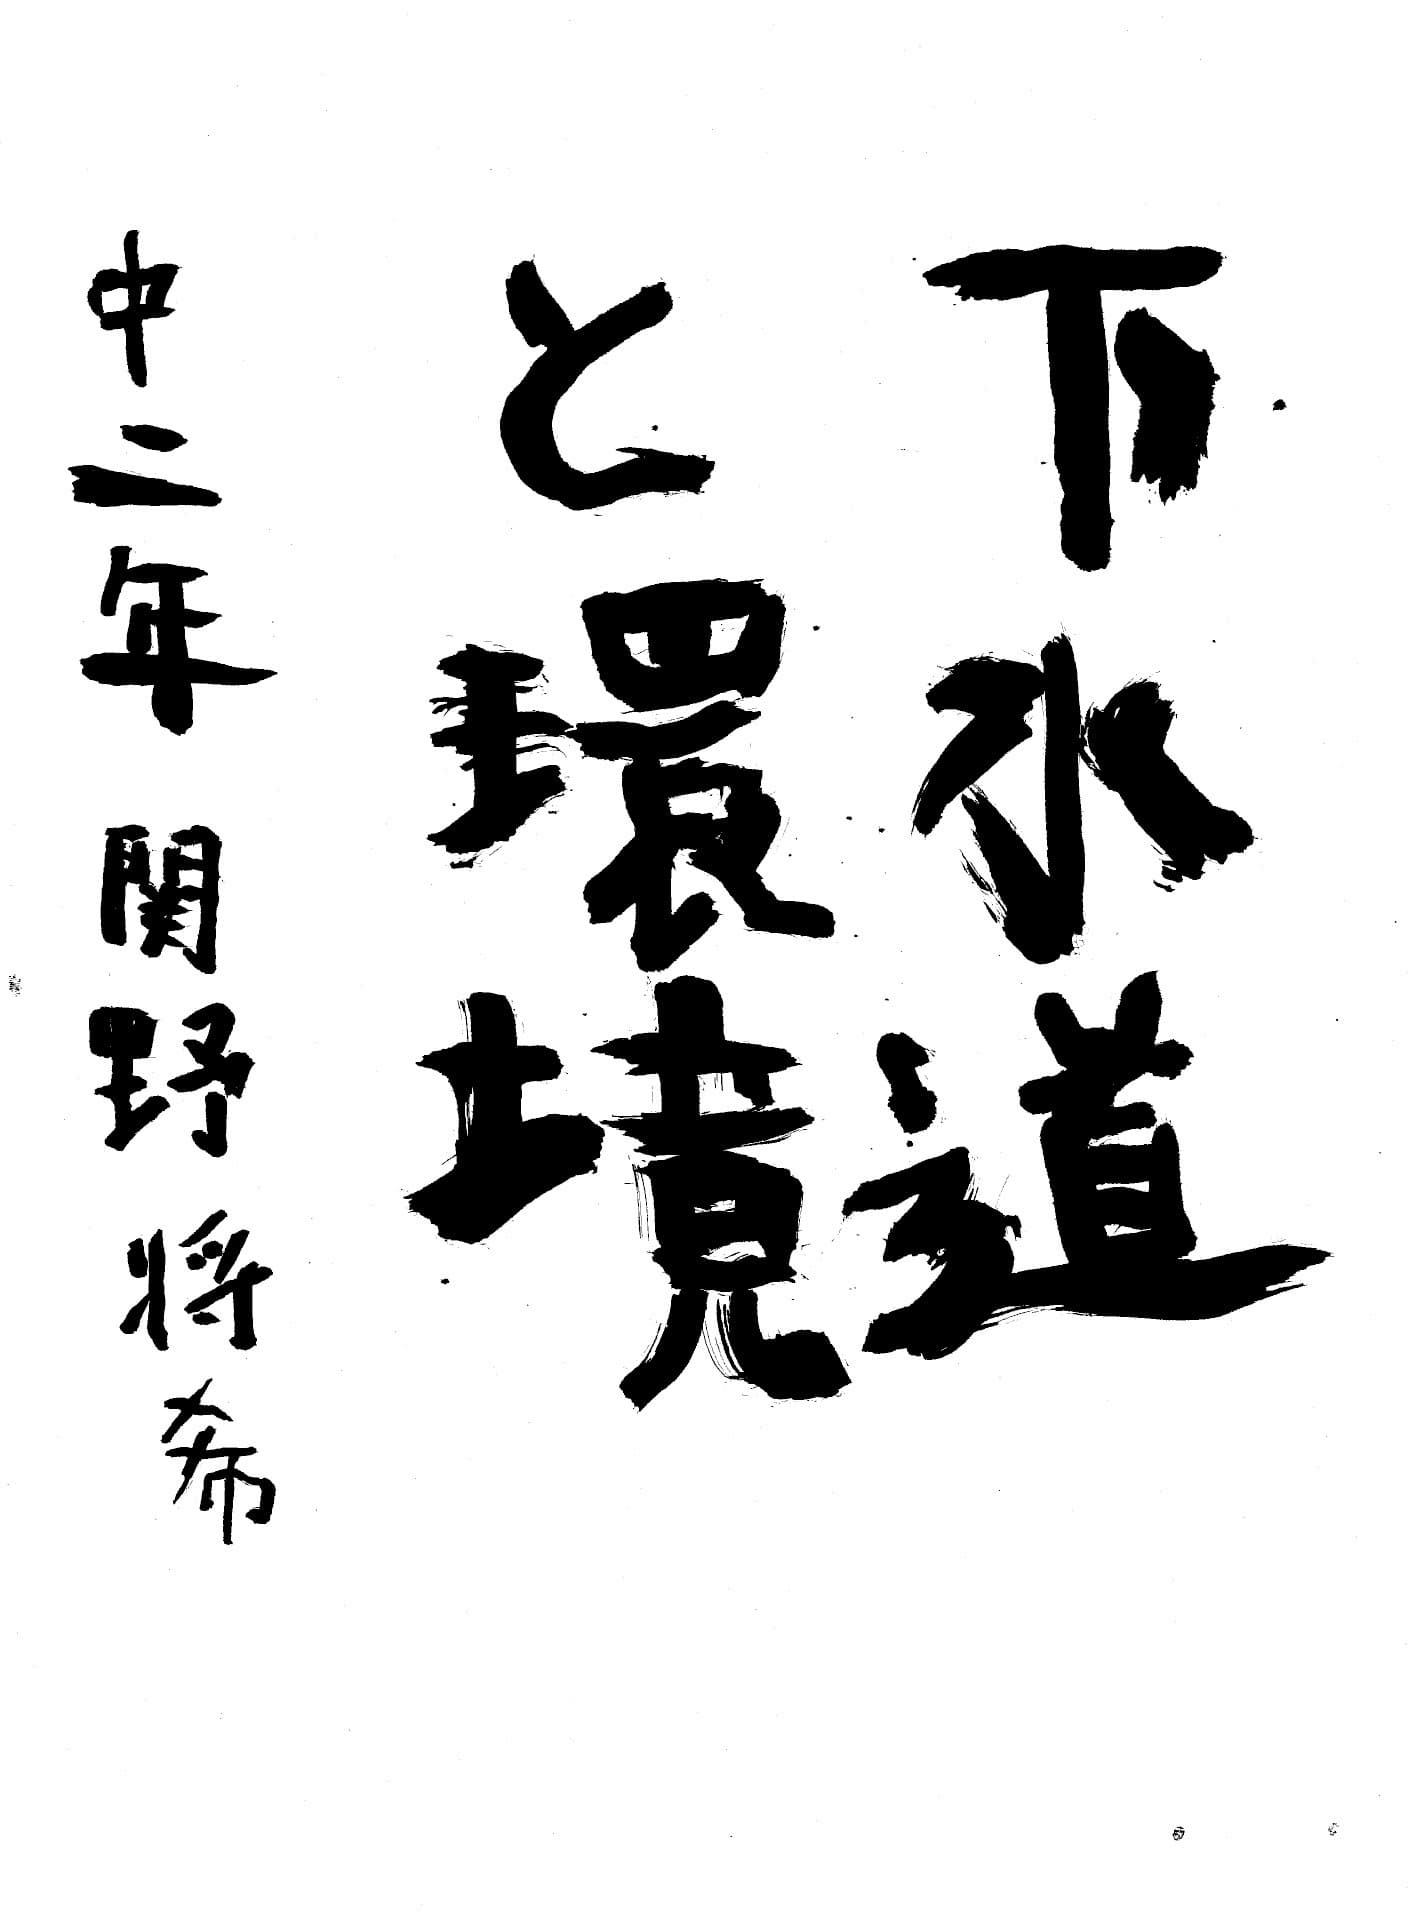 下水道
と環境
中二年 関野将希